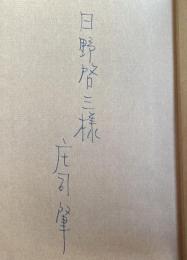 日野啓三様
庄司肇